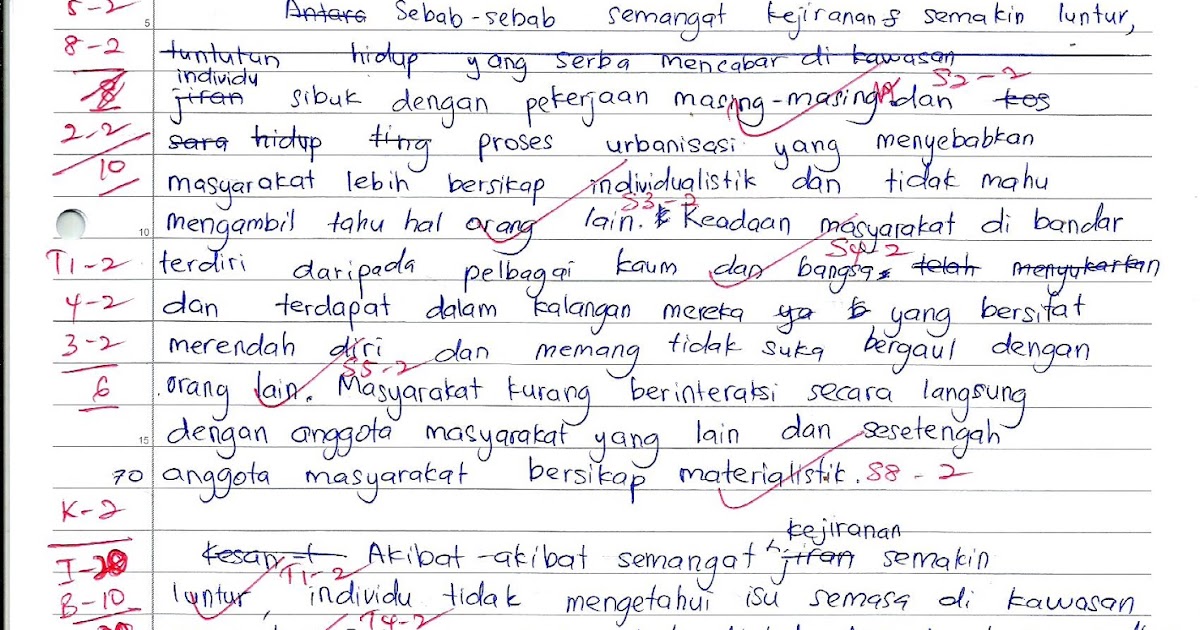 5-2 Antara Sebab-sebab semangat kejiranan semakin luntur,
5
8-2 tuntutan hidup yang serba mencabar di kawasan
individu S2-2
jiran sibuk dengan pekerjaan masing-masing dan kos
2-2 sara hidup ting proses urbanisasi yang menyebabkan
10 masyarakat lebih bersikap individualistik dan tidak mahu
S3-2
10 mengambil tahu hal orang lain. Keadaan masyarakat di bandar
S4-2
T1-2 terdiri daripada pelbagai kaum dan bangsa telah menyukarkan
4-2 dan terdapat dalam kalangan mereka ya yang bersifat
3-2 merendah diri dan memang tidak suka bergaul dengan
S5-2
6 orang lain. Masyarakat kurang berinteraksi secara langsung
15 dengan anggota masyarakat yang lain dan sesetengah
70 anggota masyarakat bersikap materialistik. S8-2
K-2
kejiranan
Kesan-t Akibat-akibat semangat jiran semakin
T1-2
B-10 luntur, individu tidak mengetahui isu semasa di kawasan
T4-2